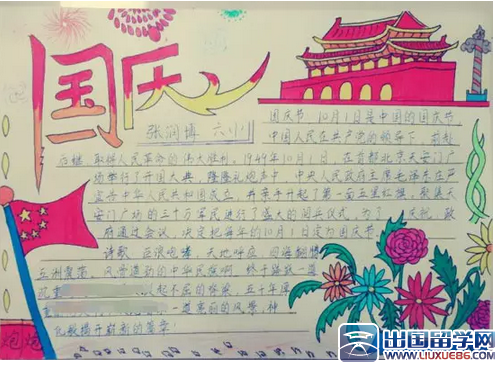 国庆
张润博 六(1)
国庆节,10月1日是中国的国庆节
中国人民在共产党的领导下,前赴
后继,取得人民革命的伟大胜利,1949年10月1日,在首都北京天安门广
场举行了开国大典,隆隆礼炮声中,中央人民政府主席毛泽东在庄
严宣告中华人民共和国成立,并亲手升起了第一面五星红旗,聚集天
安门广场的三十万军民进行了盛大的阅兵仪式,为了 庆祝,政
府通过会议,决定把每年的10月1日定为国庆节。
诗歌 巨浪 天地呼应,四海翻腾
五洲 风骨 的中华民族啊,终于
起不屈的 五千年
一道亮丽的风景,神
化般揭开崭新的篇章!
出国留学网
WWW.LIUXUE86.COM